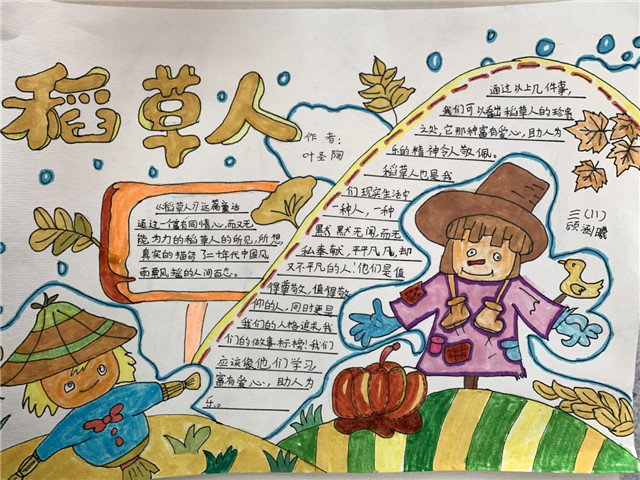 稻草人
作者:
叶圣陶
《稻草人》这篇童话
通过一个富有同情心,而又无
能为力的稻草人的所见,所想,
真实的描写了二十年代中国风
雨飘摇的人间百态。
通过以上几件事,
我们可以看出稻草人的珍贵
之处,它那种富有爱心,助人为
乐的精神令人敬佩。
稻草人也是我
们现实生活中
一种人,一种
默默无闻,而无
私奉献,平平凡凡,却
又不平凡的人!他们是值
得尊敬,值得敬
仰的人,同时更是
我们的人格追求,我
们的做事标榜!我们
应该像他们学习,
富有爱心,助人为
乐。
三(11)
顾